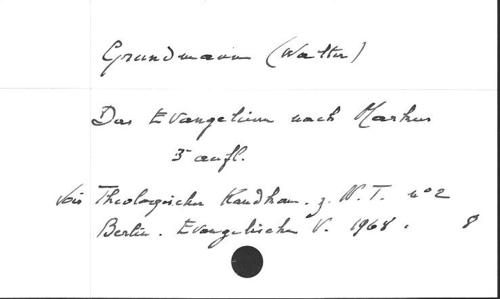 Grundmann (Walter)
Das Evangelium nach Markus
3 aufl.
Vois Theologischer Handkom. z. N.T. nº 2
Berlin. Evangelischer V. 1968. 8